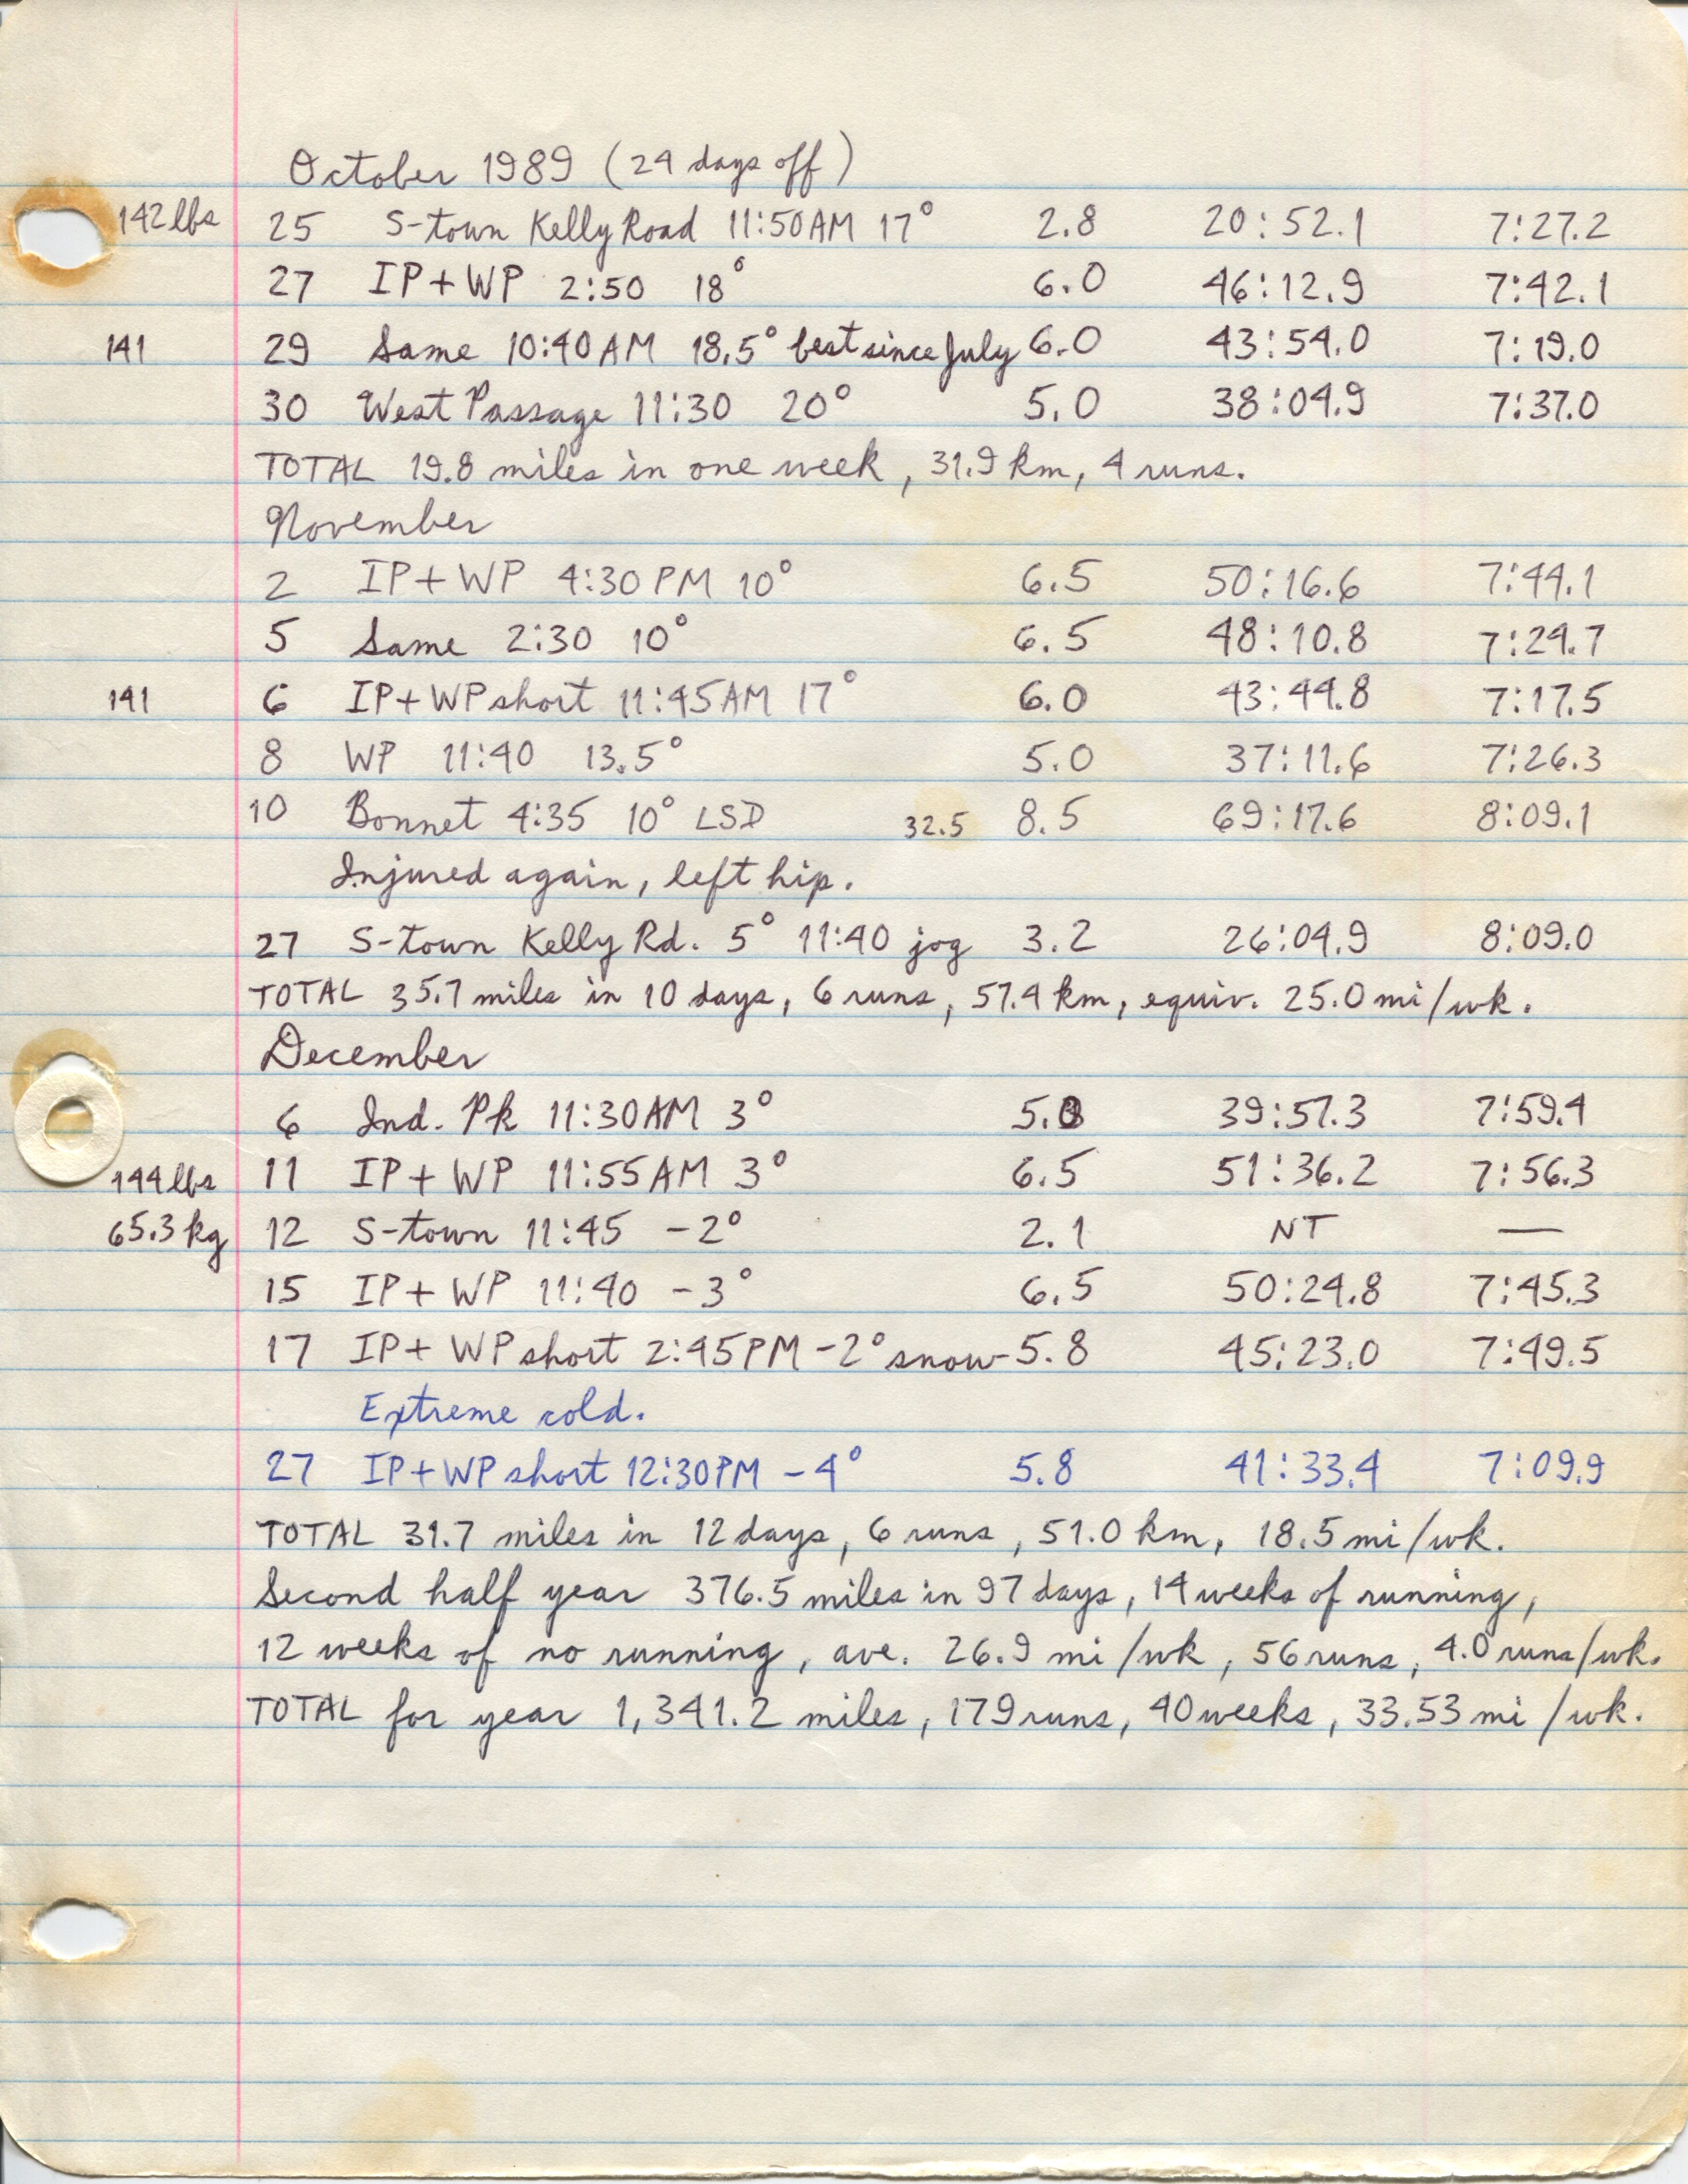 October 1989 (24 days off)
142 lbs 25 S-town Kelly Road 11:50AM 17° 2.8 20:52.1 7:27.2
27 IP+WP 2:50 18° 6.0 46:12.9 7:42.1
141 29 Same 10:40AM 18.5° best since July 6.0 43:54.0 7:19.0
30 West Passage 11:30 20° 5.0 38:04.9 7:37.0
TOTAL 19.8 miles in one week, 31.9 km, 4 runs.
November
2 IP+WP 4:30PM 10° 6.5 50:16.6 7:44.1
5 Same 2:30 10° 6.5 48:10.8 7:24.7
141 6 IP+WP short 11:45AM 17° 6.0 43:44.8 7:17.5
8 WP 11:40 13.5° 5.0 37:11.6 7:26.3
10 Bonnet 4:35 10° LSD 32.5 8.5 69:17.6 8:09.1
Injured again, left hip.
27 S-town Kelly Rd. 5° 11:40 jog 3.2 26:04.9 8:09.0
TOTAL 35.7 miles in 10 days, 6 runs, 57.4 km, equiv. 25.0 mi/wk.
December
6 Ind. Pk 11:30AM 3° 5.0 39:57.3 7:59.4
144 lbs 11 IP+WP 11:55AM 3° 6.5 51:36.2 7:56.3
65.3 kg 12 S-town 11:45 -2° 2.1 NT —
15 IP+WP 11:40 -3° 6.5 50:24.8 7:45.3
17 IP+WP short 2:45PM -2° snow 5.8 45:23.0 7:49.5
Extreme cold.
27 IP+WP short 12:30PM -4° 5.8 41:33.4 7:09.9
TOTAL 31.7 miles in 12 days, 6 runs, 51.0 km, 18.5 mi/wk.
Second half year 376.5 miles in 97 days, 14 weeks of running,
12 weeks of no running, ave. 26.9 mi/wk, 56 runs, 4.0 runs/wk.
TOTAL for year 1,341.2 miles, 179 runs, 40 weeks, 33.53 mi/wk.